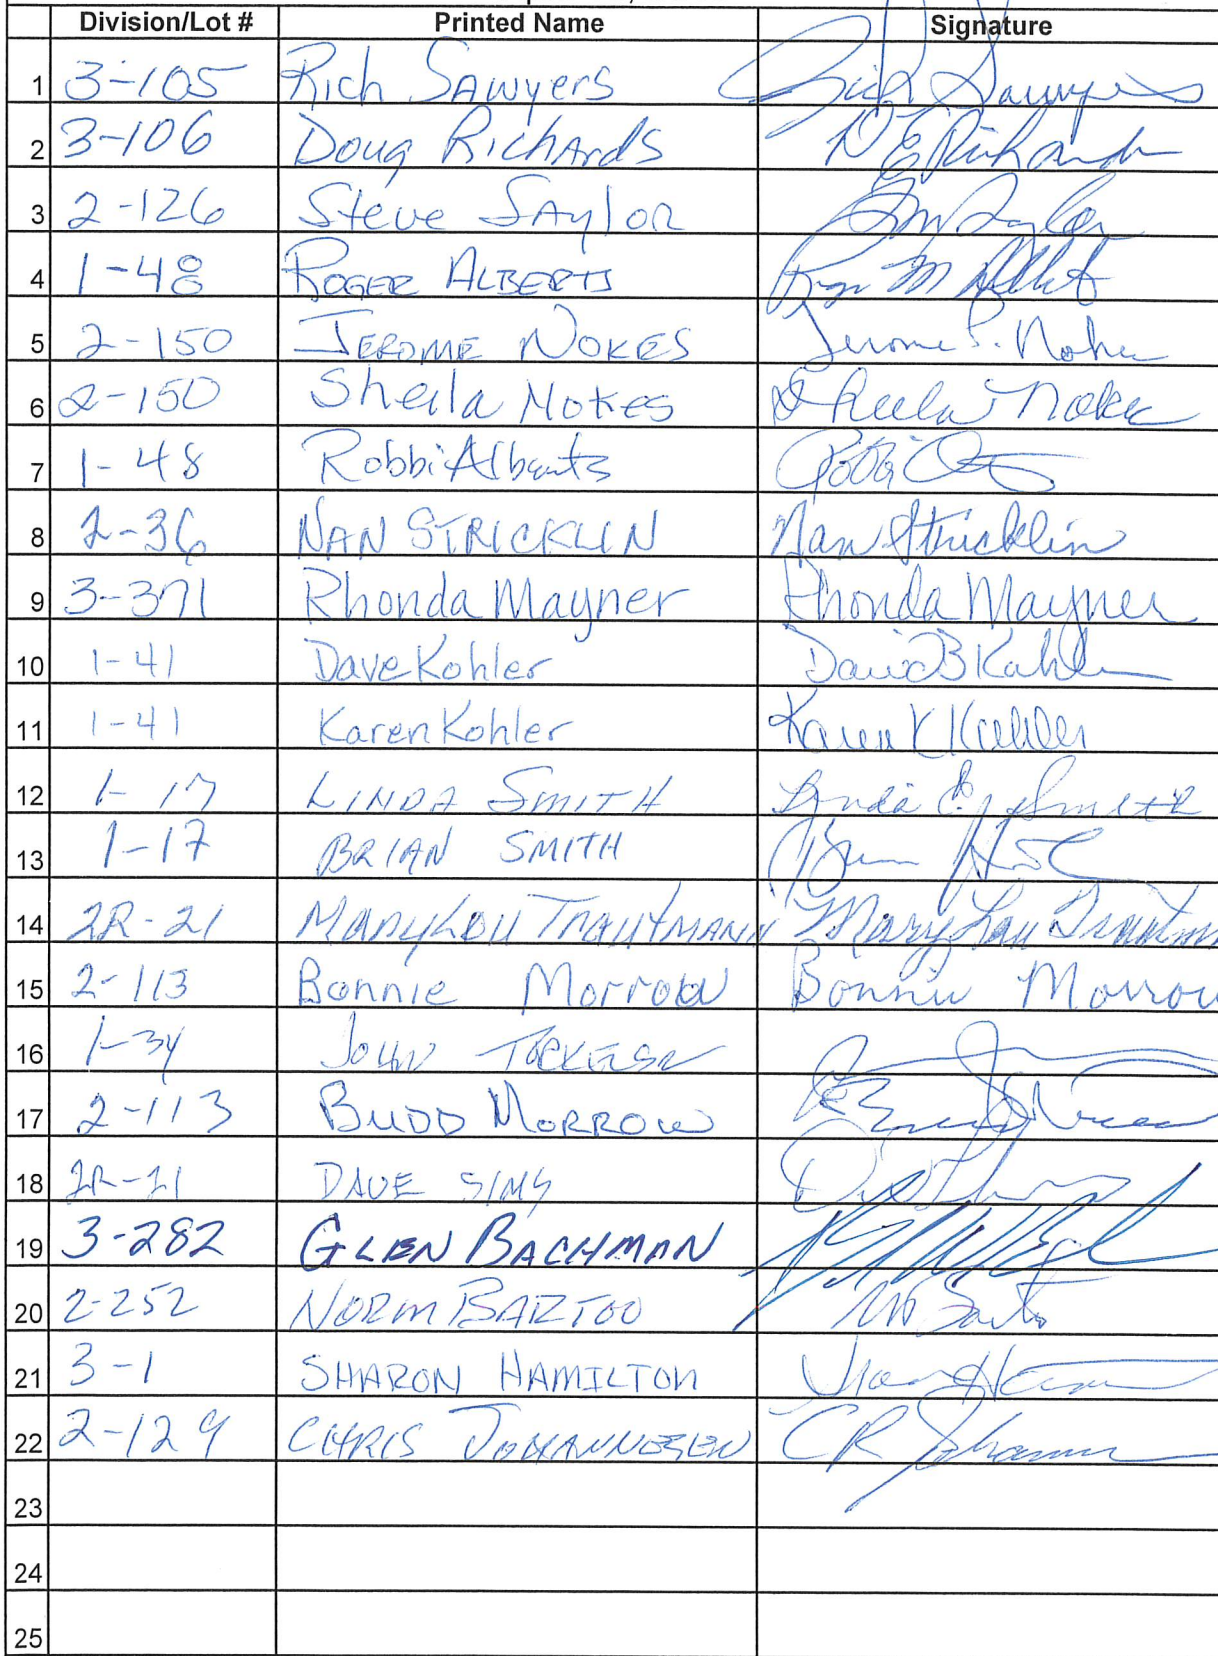 Division/Lot # Printed Name Signature
1 3-105 Rich Sawyers Rich Sawyers
2 3-106 Doug Richards D E Richards
3 2-126 Steve Saylor
4 1-48 Roger Alberts
5 2-150 Jerome Nokes Jerome S. Nokes
6 2-150 Sheila Nokes Sheila Nokes
7 1-48 Robbi Alberts Robbi
8 2-36 NAN STRICKLIN Nan Stricklin
9 3-371 Rhonda Mayner Rhonda Mayner
10 1-41 Dave Kohler David B Kohler
11 1-41 Karen Kohler Karen K Kohler
12 1-17 LINDA SMITH Linda C. Smith
13 1-17 BRIAN SMITH
14 2R-21 MaryLou Trautmann Mary Lou
15 2-113 Bonnie Morrow Bonnie Morrow
16 1-34 John
17 2-113 BUDD MORROW
18 2R-21 DAVE SIMS
19 3-282 GLEN BACHMAN
20 2-252 NORM BARTOO
21 3-1 SHARON HAMILTON
22 2-129 CHRIS JOHANNESEN CR
23
24
25